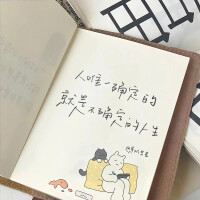 人唯一确定的
就是不确定的人生